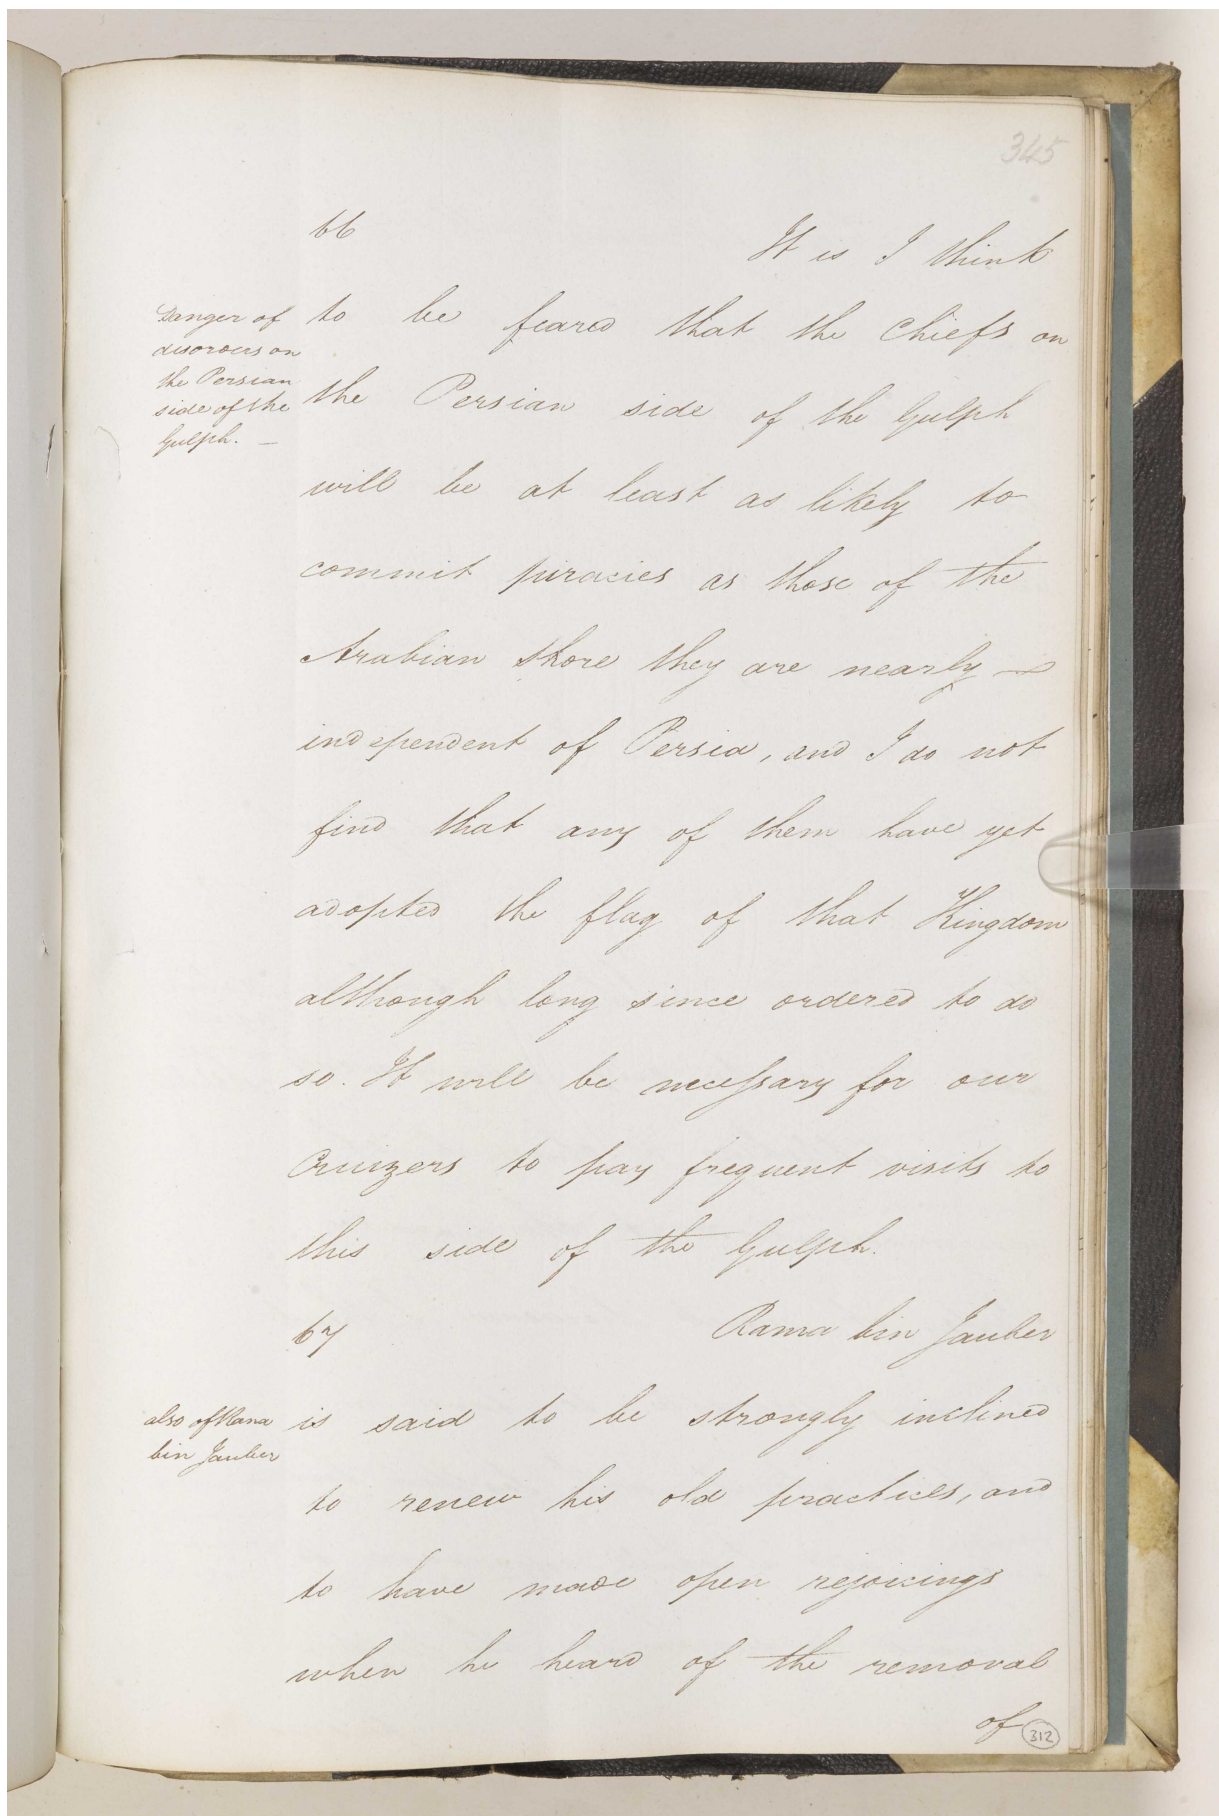 345
66
It is I think
Danger of
disorders on
the Persian
side of the
Gulph. —
to be feared that the Chiefs on
the Persian side of the Gulph
will be at least as likely to
commit piracies as those of the
Arabian Shore they are nearly —
independent of Persia, and I do not
find that any of them have yet
adopted the flag of that Kingdom
although long since ordered to do
so. It will be necessary for our
Cruizers to pay frequent visits to
this side of the Gulph.
67
Rama bin Jauber
also of Rana
bin Jauber
is said to be strongly inclined
to renew his old practices, and
to have made open rejoicings
when he heard of the removal
of
312